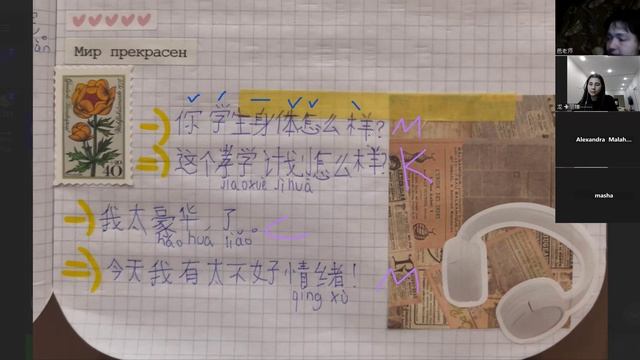 Мир прекрасен
40
你学生身体怎么样? M
这个孝学计划怎么样? K
jiaoxuè jìhuà
我太豪华,了
háo huá jiāo
今天我有太不好情绪! M
qíng xù
Alexandra Malah...
masha